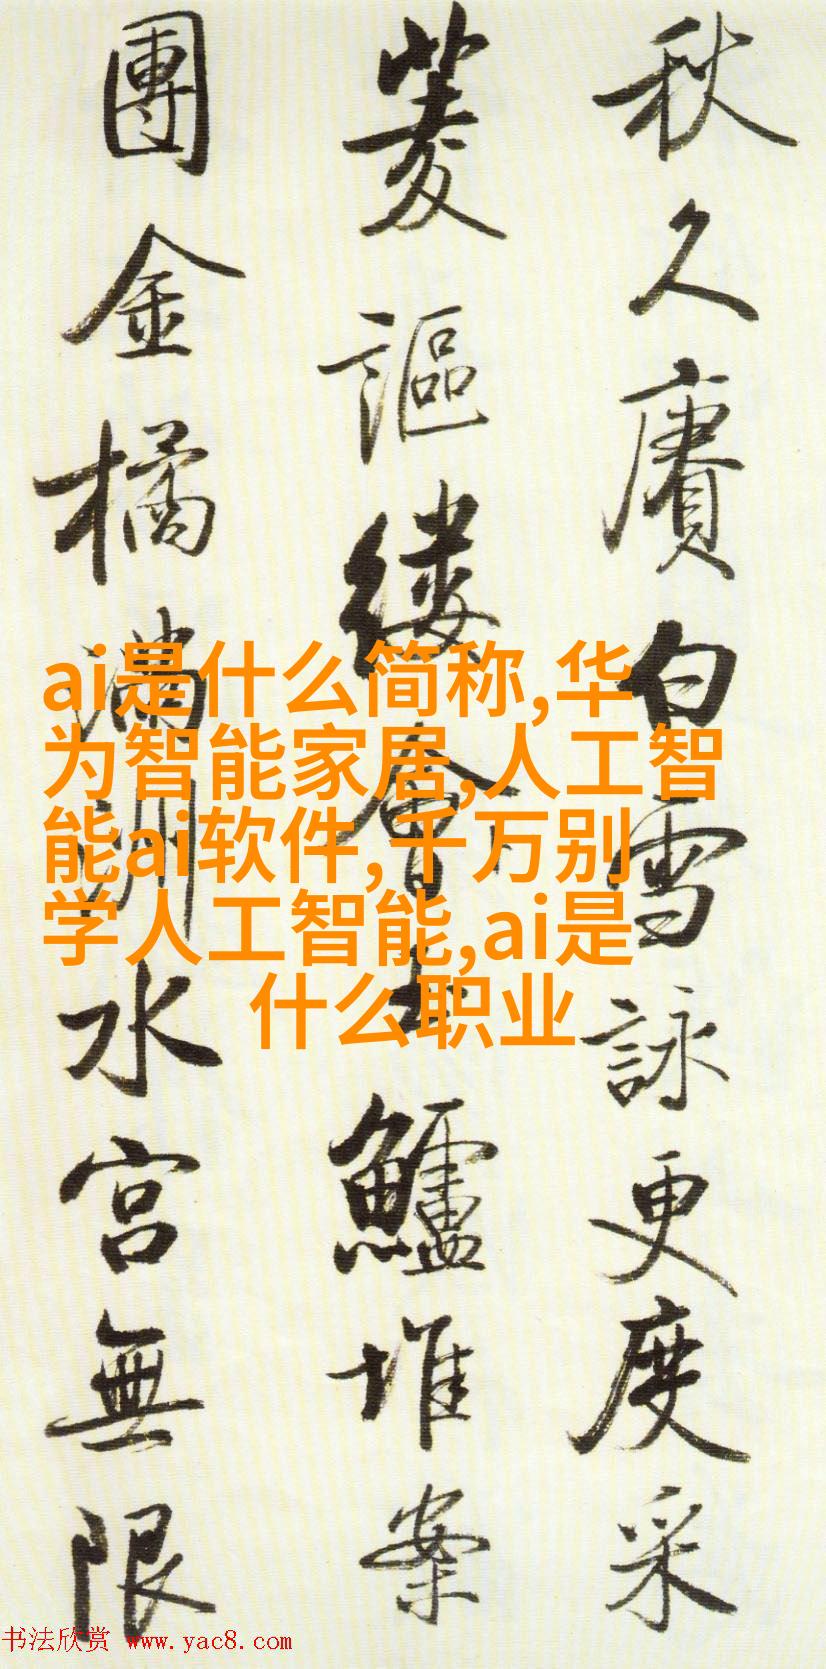 秋久賡白雪詠更度采
菱謳縷會鱸堆案
團金橘滿洲水宮無限
ai是什么简称,华
为智能家居,人工智
能ai软件,千万别
学人工智能,ai是
什么职业
书法欣赏 www.yac8.com